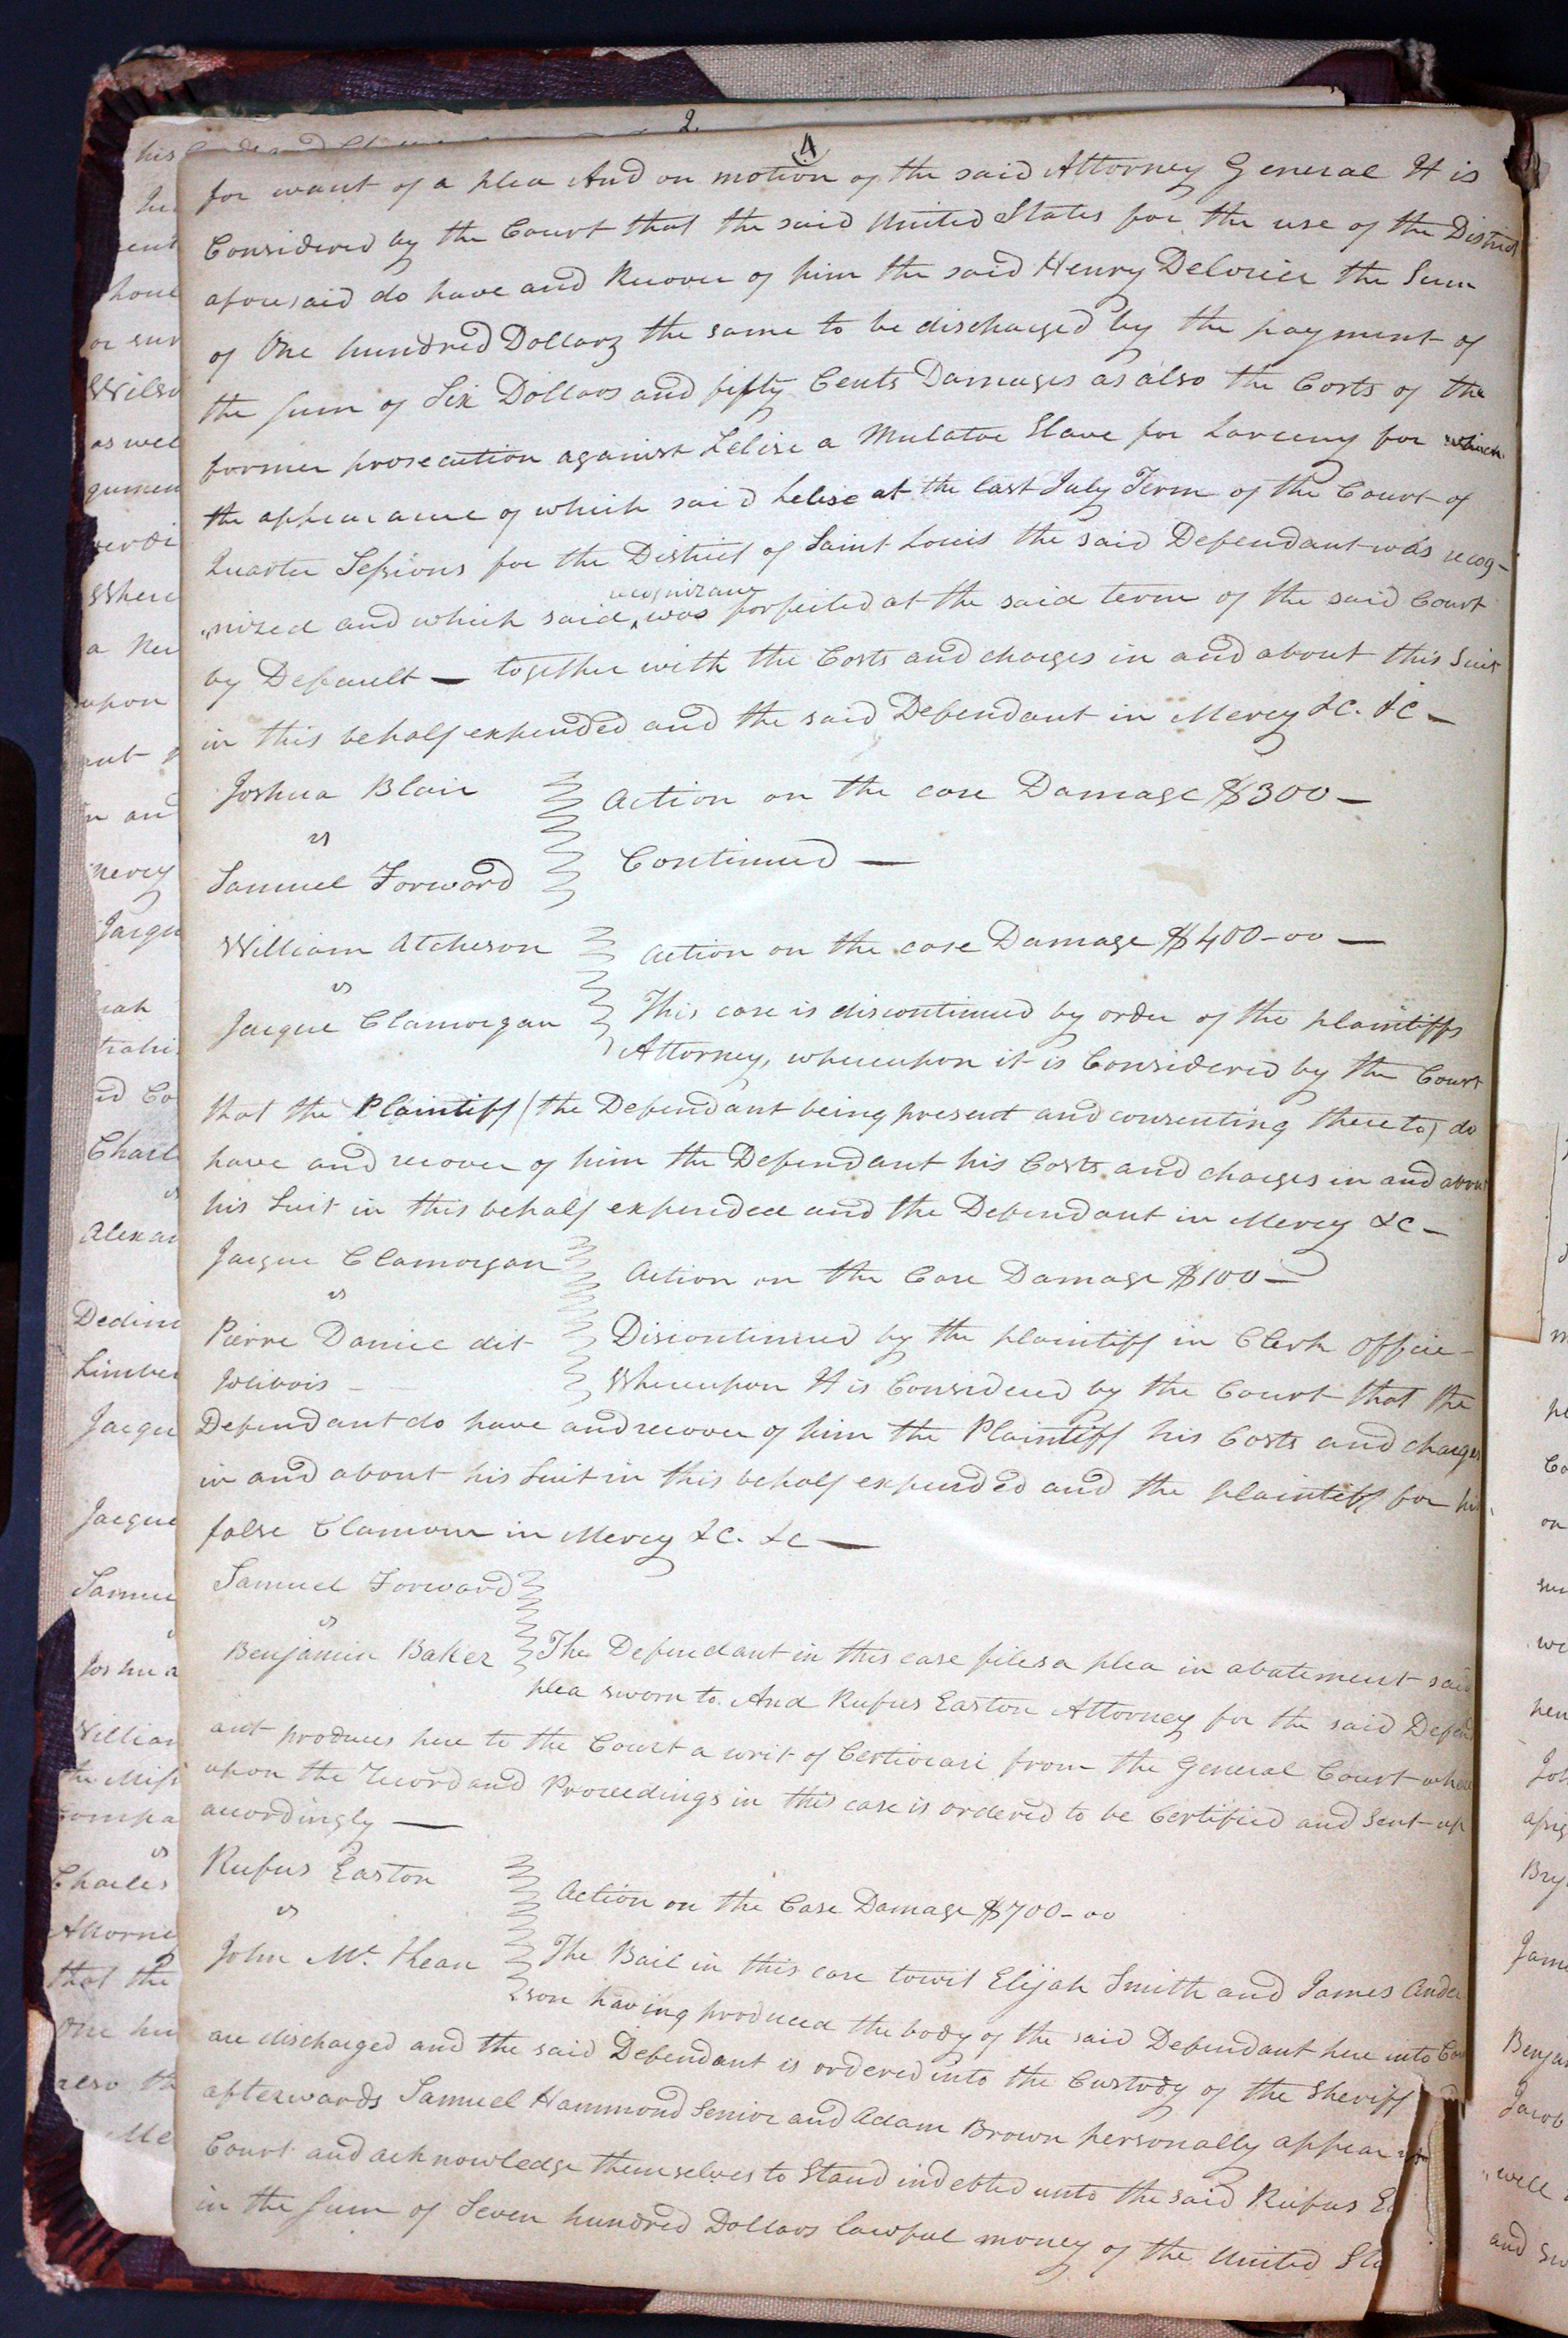 2.
4
for want of a plea And on motion of the said Attorney General It is
Considered by the Court that the said United States for the use of the District
aforesaid do have and Recover of him the said Henry Delorier the Sum
of One hundred Dollars the same to be discharged by the payment of
the sum of Six Dollars and fifty Cents Damages as also the Costs of the
former prosecution against Lelise a Mulatoe Slave for Larceny for which
the appearance of which said Lelise at the last July Term of the Court of
Quarter Sessions for the District of Saint Louis the said Defendant was recog-
"nized and which said recognizance was forfeited at the said term of the said Court
by Default — together with the Costs and charges in and about this Suit
in this behalf expended and the said Defendant in Mercy &c. &c —
Joshua Blair
vs
Samuel Forward
Action on the case Damage $300 —
Continued —
William Atcheson
vs
Jacque Clamorgan
Action on the case Damage $400-00 —
This case is discontinued by order of the plaintiffs
Attorney, whereupon it is Considered by the Court
that the Plaintiff (the Defendant being present and consenting thereto) do
have and recover of him the Defendant his Costs and charges in and about
his Suit in this behalf expended and the Defendant in Mercy &c —
Jacque Clamorgan
vs
Pierre Daniel dit
Jolibois —
Action on the Case Damage $100 —
Discontinued by the plaintiff in Clerk Office —
Whereupon It is Considered by the Court that the
Defendant do have and recover of him the Plaintiff his Costs and charges
in and about his Suit in this behalf expended and the plaintiff for his
false Clamour in Mercy &c. &c —
Samuel Forward
vs
Benjamin Baker
The Defendant in this case files a plea in abatement said
plea sworn to. And Rufus Easton Attorney for the said Defend
ant produces here to the Court a writ of Certiorari from the General Court where
upon the Record and Proceedings in this case is ordered to be Certified and Sent up
accordingly —
Rufus Easton
vs
John Mc Kean
Action on the Case Damage $700-00
The Bail in this case towit Elijah Smith and James Ander
son having produced the body of the said Defendant here into Cou
are discharged and the said Defendant is ordered into the Custody of the Sheriff
afterwards Samuel Hammond Senior and Adam Brown personally appear
Court and acknowledge themselves to Stand indebted unto the said Rufus Ea
in the Sum of Seven hundred Dollars lawful money of the United Sta